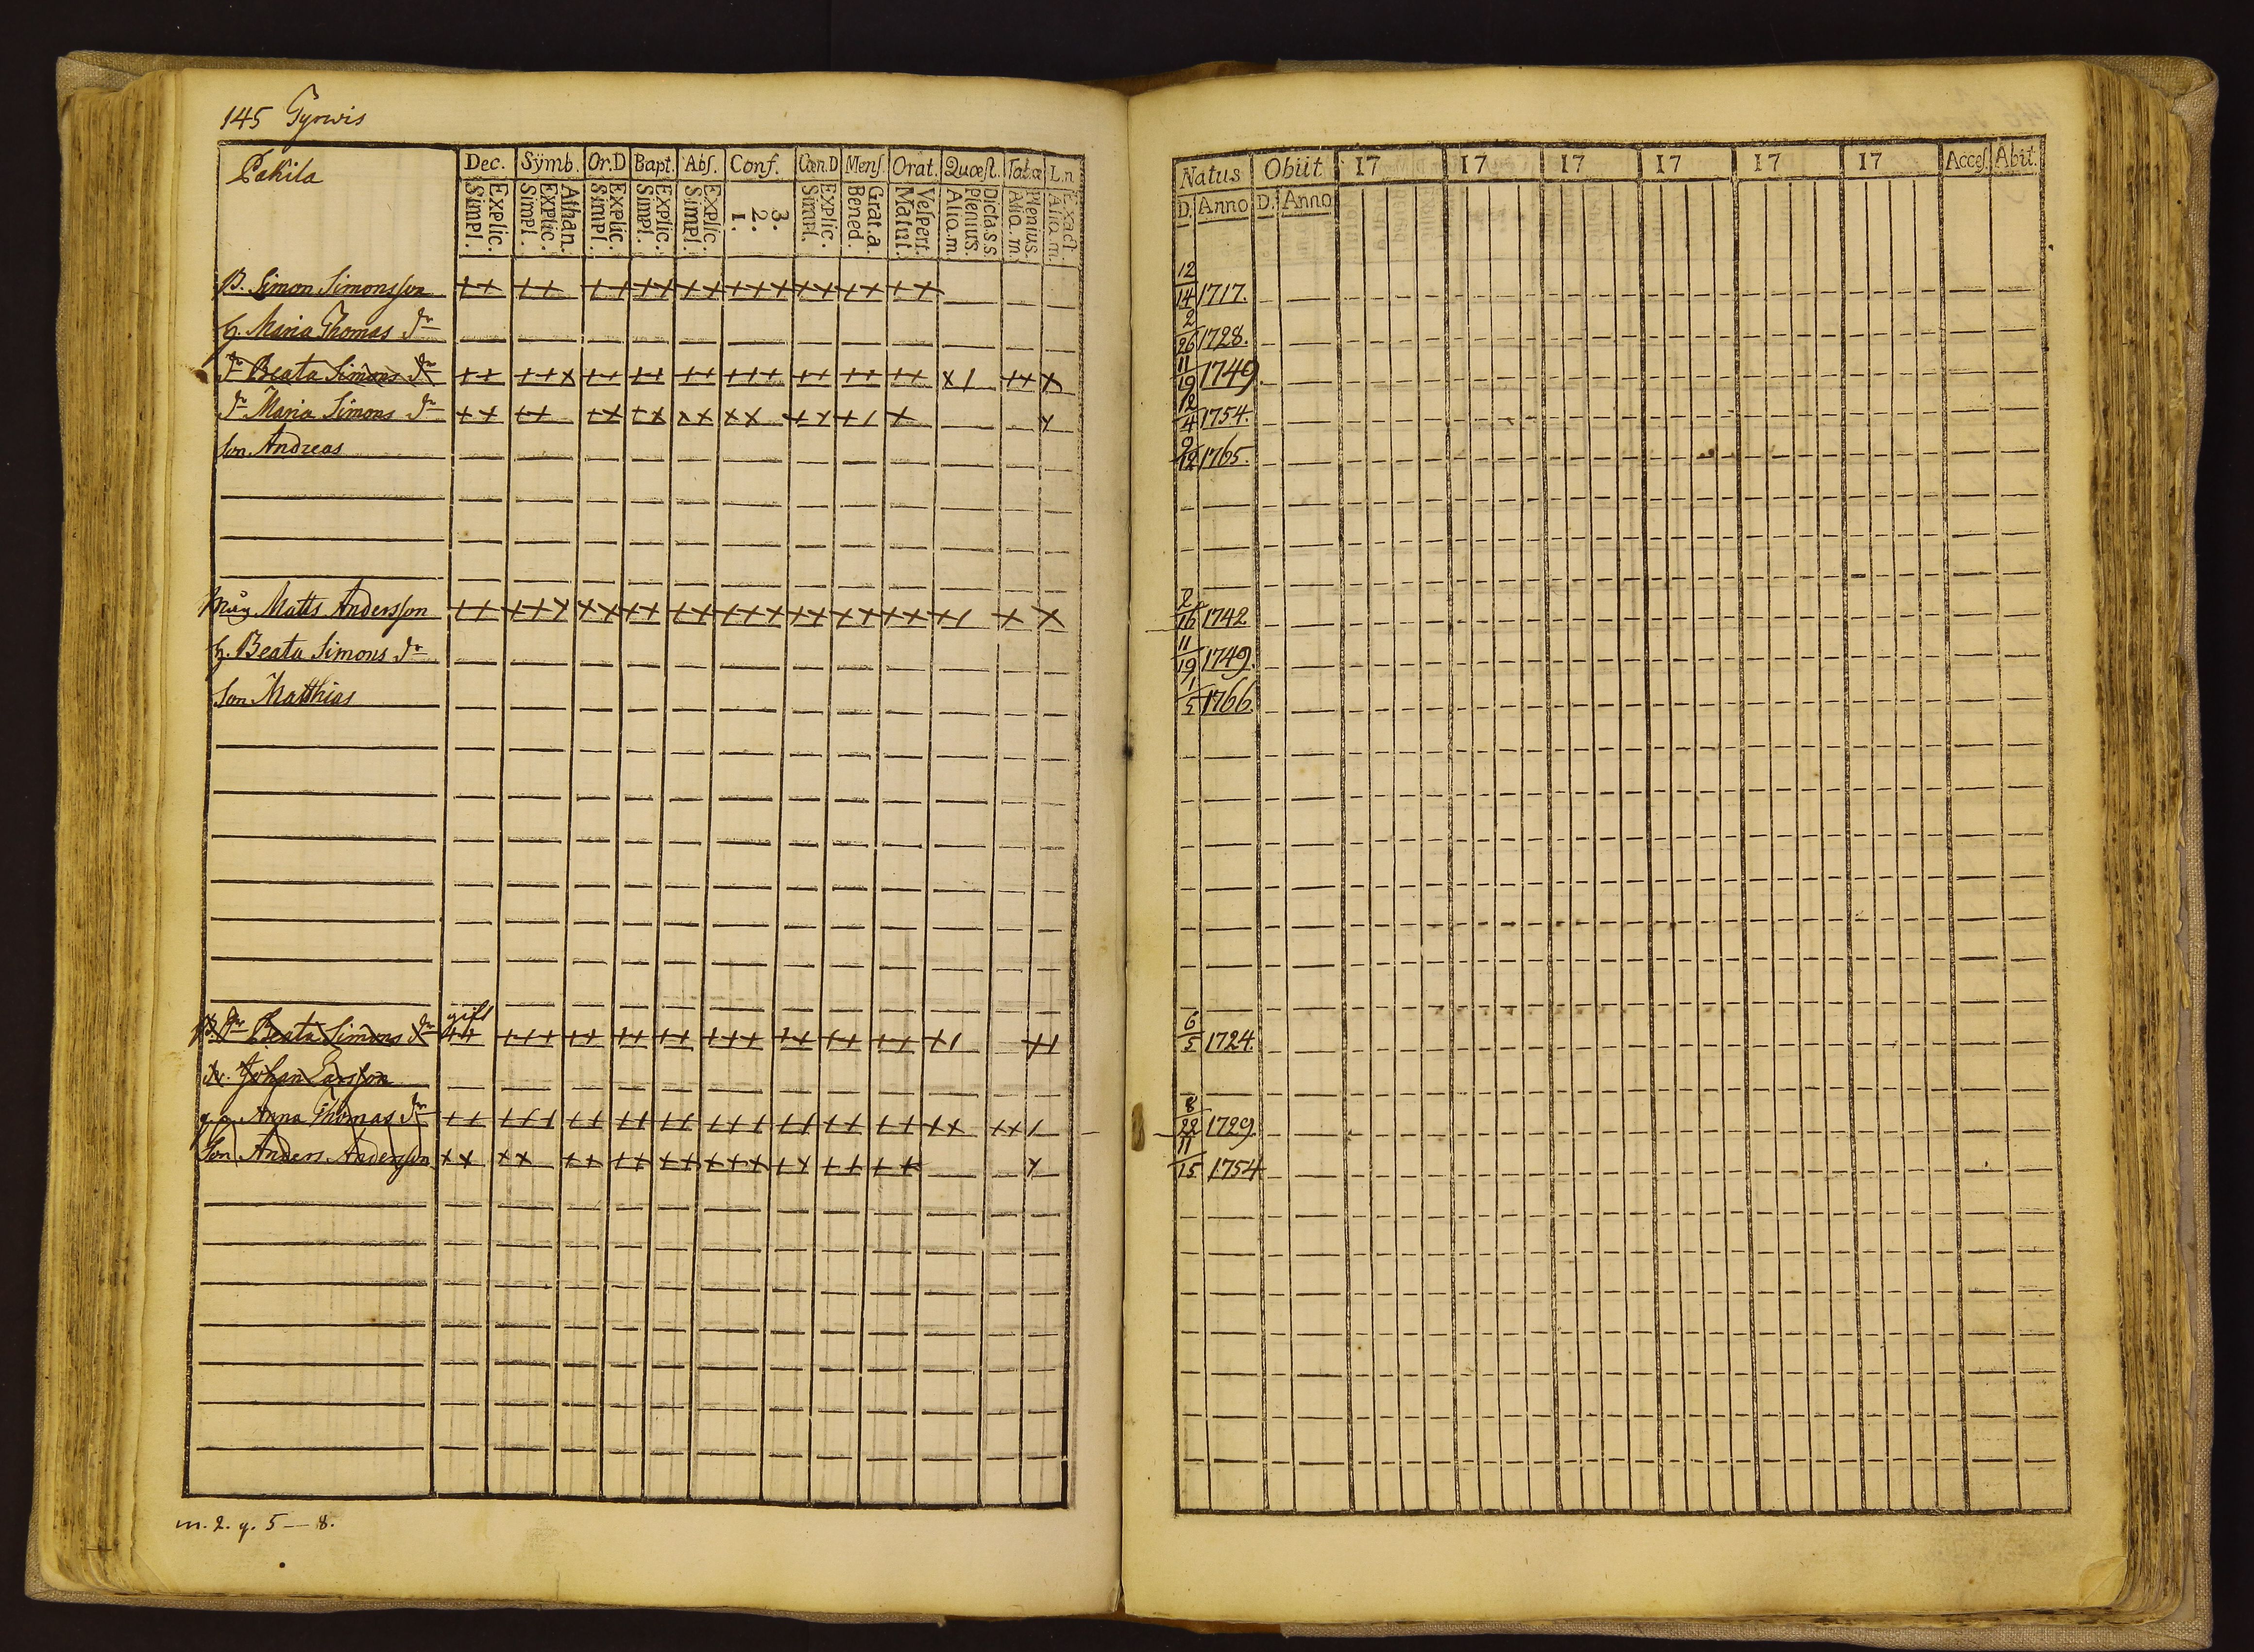 145 Gyrwis
Pakila
Dec. Sÿmb. Or.D Bapt. Abſ. Conf. Cœn.D Menſ. Orat. Quœſt. Tab.œ L.n
Explic. Simpl. Athan. Explic. Simpl. Explic. Simpl. Explic. Simpl. Explic. Simpl. 3. 2. 1. Explic. Simpl. Grat.a. Bened. Veſpert. Matut. Dicta.s.s Plenius. Aliq.m Plenius. Aliq.m. Exact. Aliq.m.
Natus Obiit 17 17 17 17 17 17 Acceſ. Abit.
D. Anno D. Anno
B. Simon Simonsson ++ ++ ++ ++ ++ +++ ++ ++ ++ 12/14 1717.
h. Maria Thomas dr 2/26 1728.
dr Beata Simons dr ++ ++x ++ ++ ++ +++ ++ ++ ++ x/ ++ x 11/19 1749.
dr Maria Simons dr ++ ++ +x +x xx xx +x +/ x x 12/4 1754.
Son Andreas 9/12 1765.
Måg Matts Andersson ++ +++ ++ ++ ++ +++ ++ ++ ++ +/ + x 2/16 1742
h. Beata Simons dr 11/19 1749.
Son Matthias 1/5 1766.
gift
dr Beata Simons dr ++ +++ ++ ++ ++ +++ ++ ++ ++ +/ +/ 6/5 1724.
Johan Larsson
Anna Thomas dr ++ +++ ++ ++ ++ +++ ++ ++ ++ ++ ++ / 8/22 1729.
Son Anders Andersson xx xx ++ ++ ++ +++ ++ ++ ++ x 11/15 1754
m. 2. q. 5 — 8.